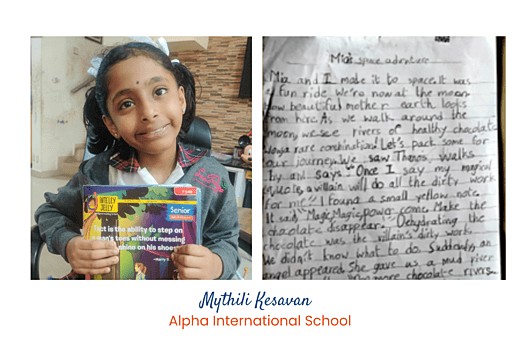 WITTY
JELLY
Senior
Tact is the ability to step on
a man's toes without messing
shine on his shoes
Mia's space adventure
Mia and I make it to space. It was
a fun ride. We're now at the moon
how beautiful mother earth looks
from here. As we walk around the
moon, we see rivers of healthy chocolate
rare combination. Let's pack some for
our journey. We saw Thenos, walks
by and says "Once I say my magical
a villain will do all the dirty work
for me". I found a small yellow note.
It said "Magic, Magic power come. Make the
chocolate disappear". Dehydrating the
chocolate was the villain's dirty work.
We didn't know what to do. Suddenly, an
angel appeared. She gave us a mud river
more chocolate rivers
Mythili Kesavan
Alpha International School